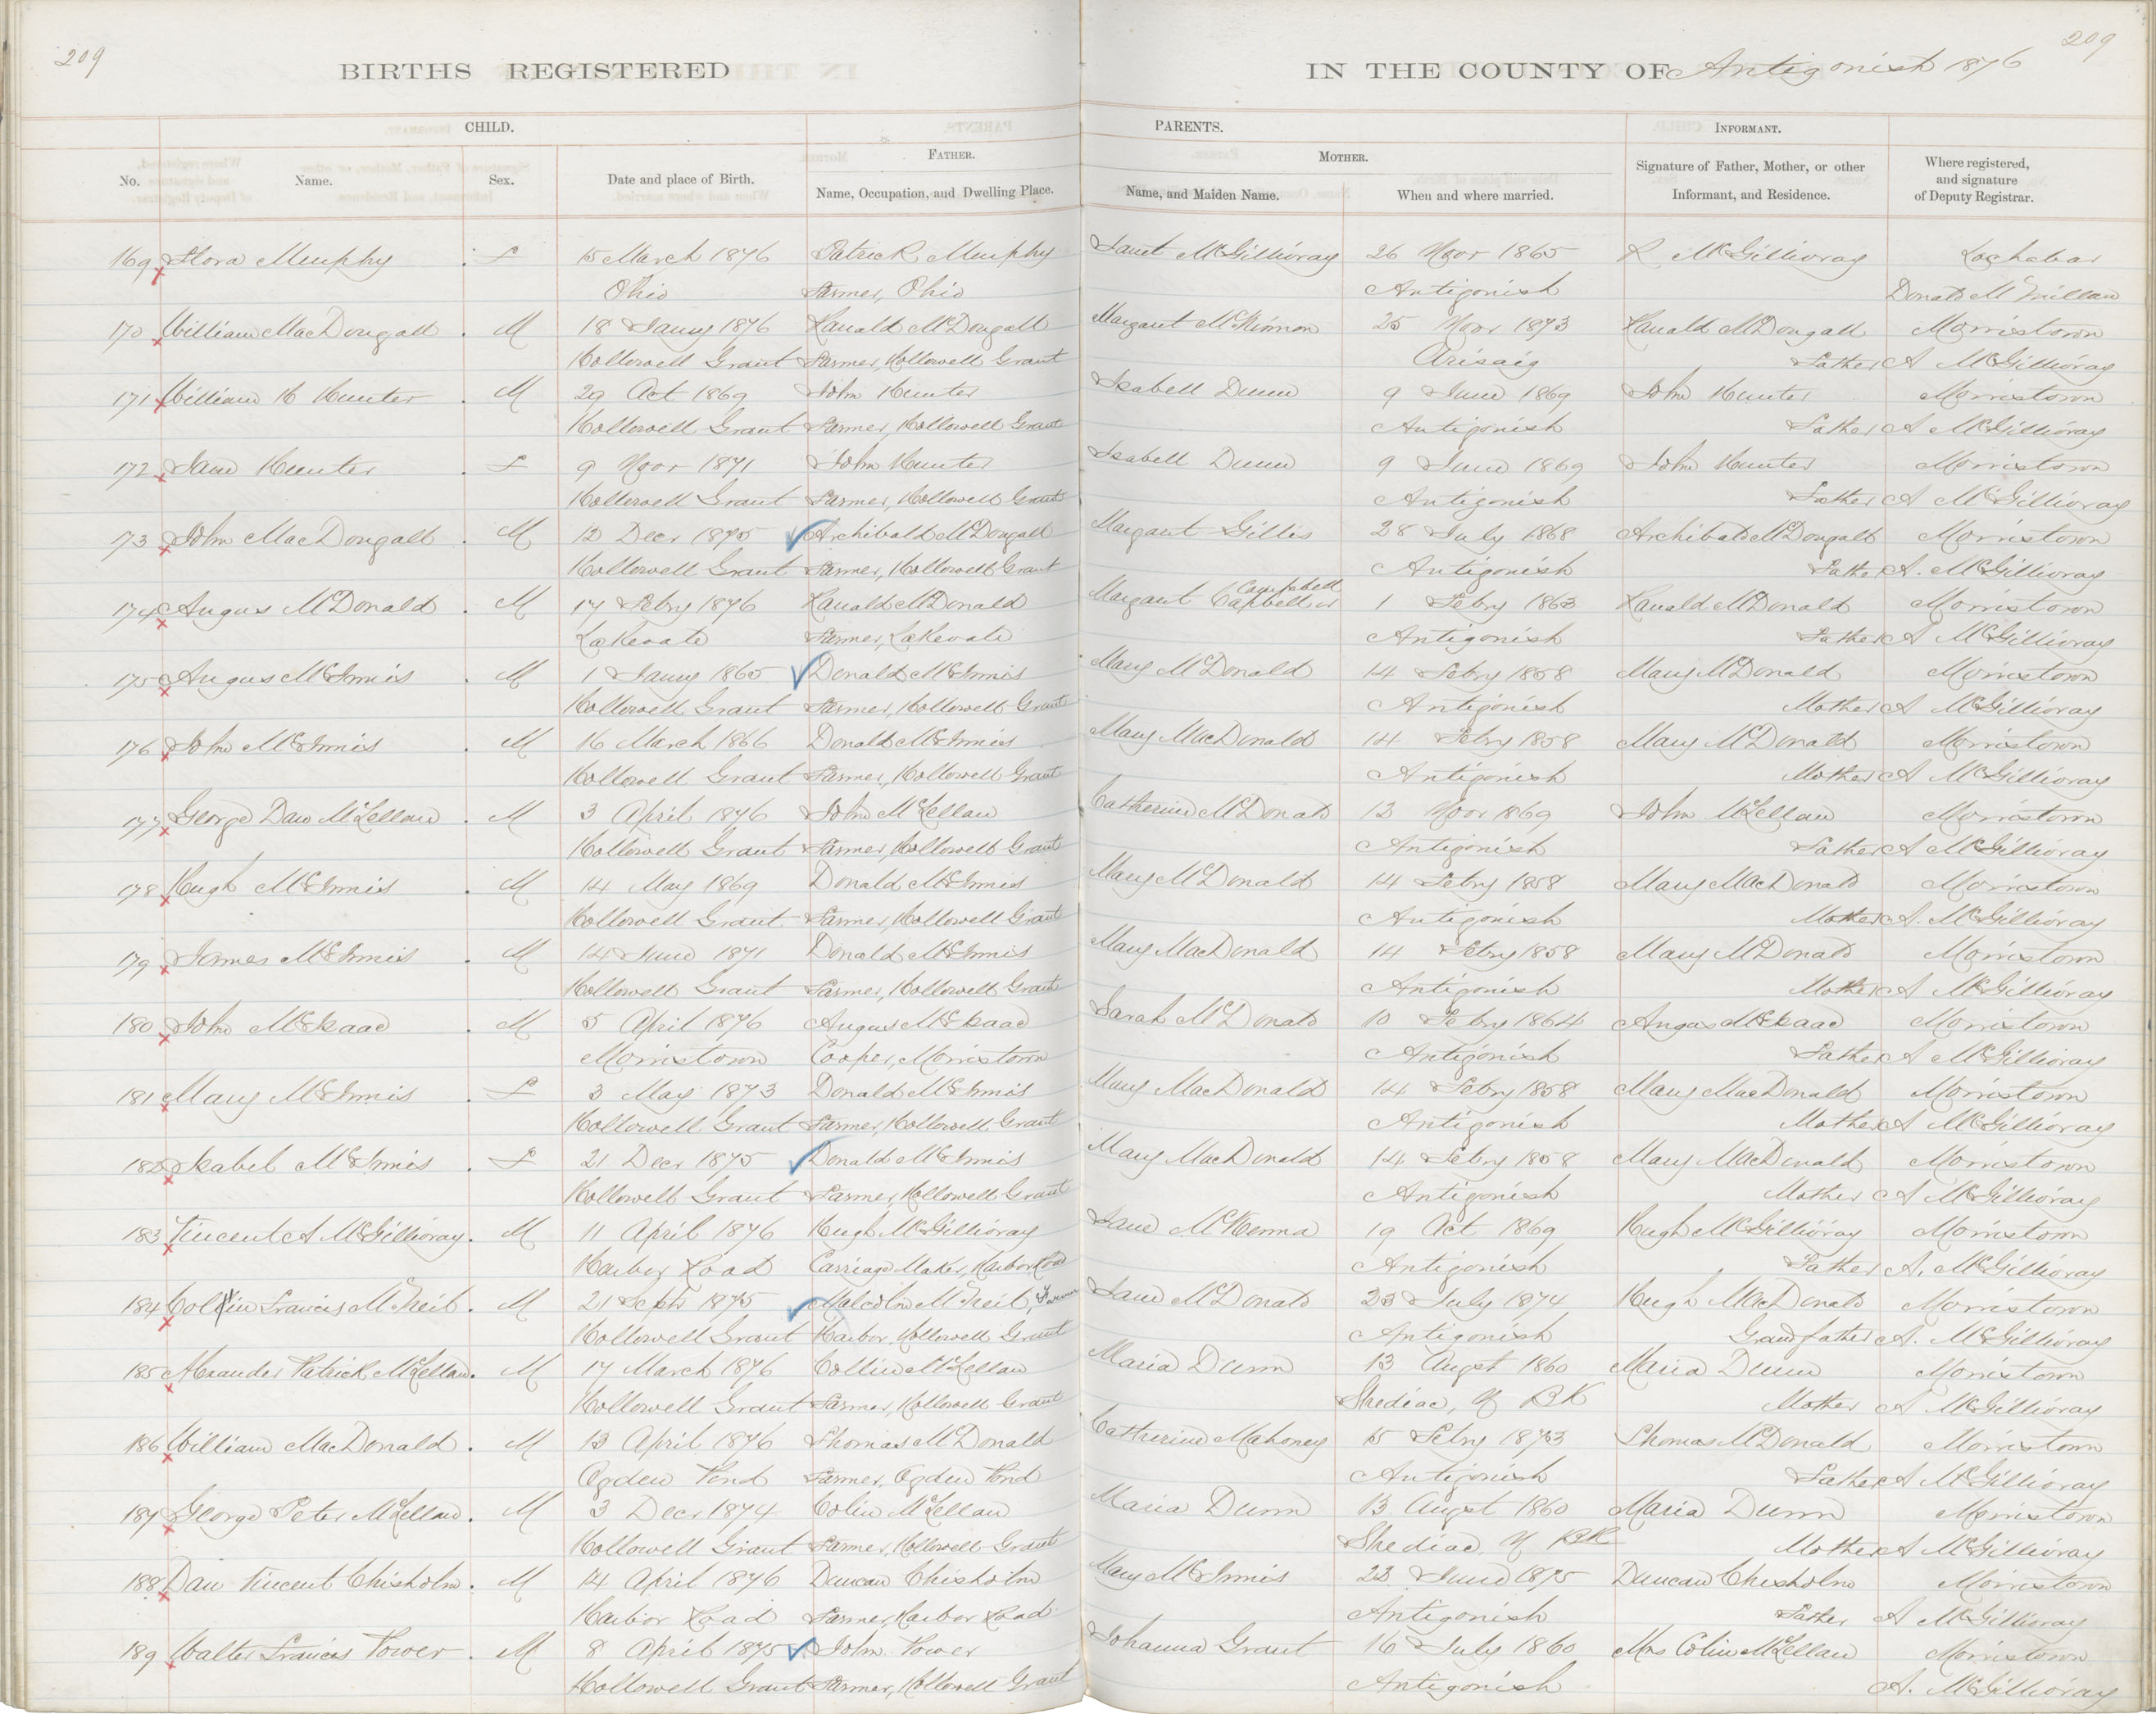 209
209
BIRTHS REGISTERED
IN THE COUNTY OF Antigonish 1876
CHILD.
PARENTS.
INFORMANT.
FATHER.
MOTHER.
No.
Name.
Sex.
Date and place of Birth.
Name, Occupation, and Dwelling Place.
Name, and Maiden Name.
When and where married.
Signature of Father, Mother, or other Informant, and Residence.
Where registered, and signature of Deputy Registrar.
169 Flora Murphy . F 15 March 1876 Patrick Murphy Janet McGillivray 26 Novr 1865 R McGillivray Lochabar
Ohio Farmer, Ohio Antigonish Donald McMillan
170 William MacDougall . M 18 Jany 1876 Ranald McDougall Margaret McKinnon 25 Novr 1873 Ranald McDougall Morristown
Hollowell Grant Farmer, Hollowell Grant Arisaig Father A McGillivray
171 William H Hunter . M 29 Oct 1869 John Hunter Isabell Dunn 9 June 1869 John Hunter Morristown
Hollowell Grant Farmer, Hollowell Grant Antigonish Father A McGillivray
172 Jane Hunter . F 9 Novr 1871 John Hunter Isabell Dunn 9 June 1869 John Hunter Morristown
Hollowell Grant Farmer, Hollowell Grant Antigonish Father A McGillivray
173 John MacDougall . M 12 Decr 1875 Archibald McDougall Margaret Gillis 28 July 1868 Archibald McDougall Morristown
Hollowell Grant Farmer, Hollowell Grant Antigonish Father A. McGillivray
174 Angus McDonald . M 17 Febry 1876 Ranald McDonald Margaret Campbell 1 Febry 1863 Ranald McDonald Morristown
Lakevate Farmer, Lakevate Antigonish Father A McGillivray
175 Angus McInnis . M 1 Jany 1865 Donald McInnis Mary McDonald 14 Febry 1858 Mary McDonald Morristown
Hollowell Grant Farmer, Hollowell Grant Antigonish Mother A McGillivray
176 John McInnis . M 16 March 1866 Donald McInnis Mary MacDonald 14 Febry 1858 Mary McDonald Morristown
Hollowell Grant Farmer, Hollowell Grant Antigonish Mother A McGillivray
177 George Dan McLellan . M 3 April 1876 John McLellan Catherine McDonald 12 Novr 1869 John McLellan Morristown
Hollowell Grant Farmer, Hollowell Grant Antigonish Father A McGillivray
178 Hugh McInnis . M 14 May 1869 Donald McInnis Mary McDonald 14 Febry 1858 Mary MacDonald Morristown
Hollowell Grant Farmer, Hollowell Grant Antigonish Mother A. McGillivray
179 James McInnis . M 14 June 1871 Donald McInnis Mary MacDonald 14 Febry 1858 Mary McDonald Morristown
Hollowell Grant Farmer, Hollowell Grant Antigonish Mother A McGillivray
180 John McIsaac . M 5 April 1876 Angus McIsaac Sarah McDonald 10 Febry 1864 Angus McIsaac Morristown
Morristown Cooper, Morristown Antigonish Father A McGillivray
181 Mary McInnis . F 3 May 1873 Donald McInnis Mary MacDonald 14 Febry 1858 Mary MacDonald Morristown
Hollowell Grant Farmer, Hollowell Grant Antigonish Mother A McGillivray
182 Isabel McInnis . F 21 Decr 1875 Donald McInnis Mary MacDonald 14 Febry 1858 Mary MacDonald Morristown
Hollowell Grant Farmer, Hollowell Grant Antigonish Mother A McGillivray
183 Vincent A McGillivray . M 11 April 1876 Hugh McGillivray Jane McKenna 19 Oct 1869 Hugh McGillivray Morristown
Harbor Road Carriage Maker, Harbor Road Antigonish Father A. McGillivray
184 Colin Francis McNeil . M 21 Septr 1875 Malcolm McNeil, Farmer Jane McDonald 23 July 1874 Hugh MacDonald Morristown
Hollowell Grant Harbor, Hollowell Grant Antigonish Grandfather A. McGillivray
185 Alexander Patrick McLellan . M 17 March 1876 Collin McLellan Maria Dunn 13 Augst 1860 Maria Dunn Morristown
Hollowell Grant Farmer, Hollowell Grant Shediac, N BK Mother A McGillivray
186 William MacDonald . M 13 April 1876 Thomas McDonald Catherine Mahoney 15 Febry 1873 Thomas McDonald Morristown
Ogden Pond Farmer, Ogden Pond Antigonish Father A McGillivray
187 George Peter McLellan . M 3 Decr 1874 Colin McLellan Maria Dunn 13 Augst 1860 Maria Dunn Morristown
Hollowell Grant Farmer, Hollowell Grant Shediac, N BK Mother A McGillivray
188 Dan Vincent Chisholm . M 14 April 1876 Duncan Chisholm Mary McInnis 23 June 1875 Duncan Chisholm Morristown
Harbor Road Farmer, Harbor Road Antigonish Father A McGillivray
189 Walter Francis Power . M 8 April 1875 John Power Johanna Grant 16 July 1860 Mrs Colin McLellan Morristown
Hollowell Grant Farmer, Hollowell Grant Antigonish A. McGillivray